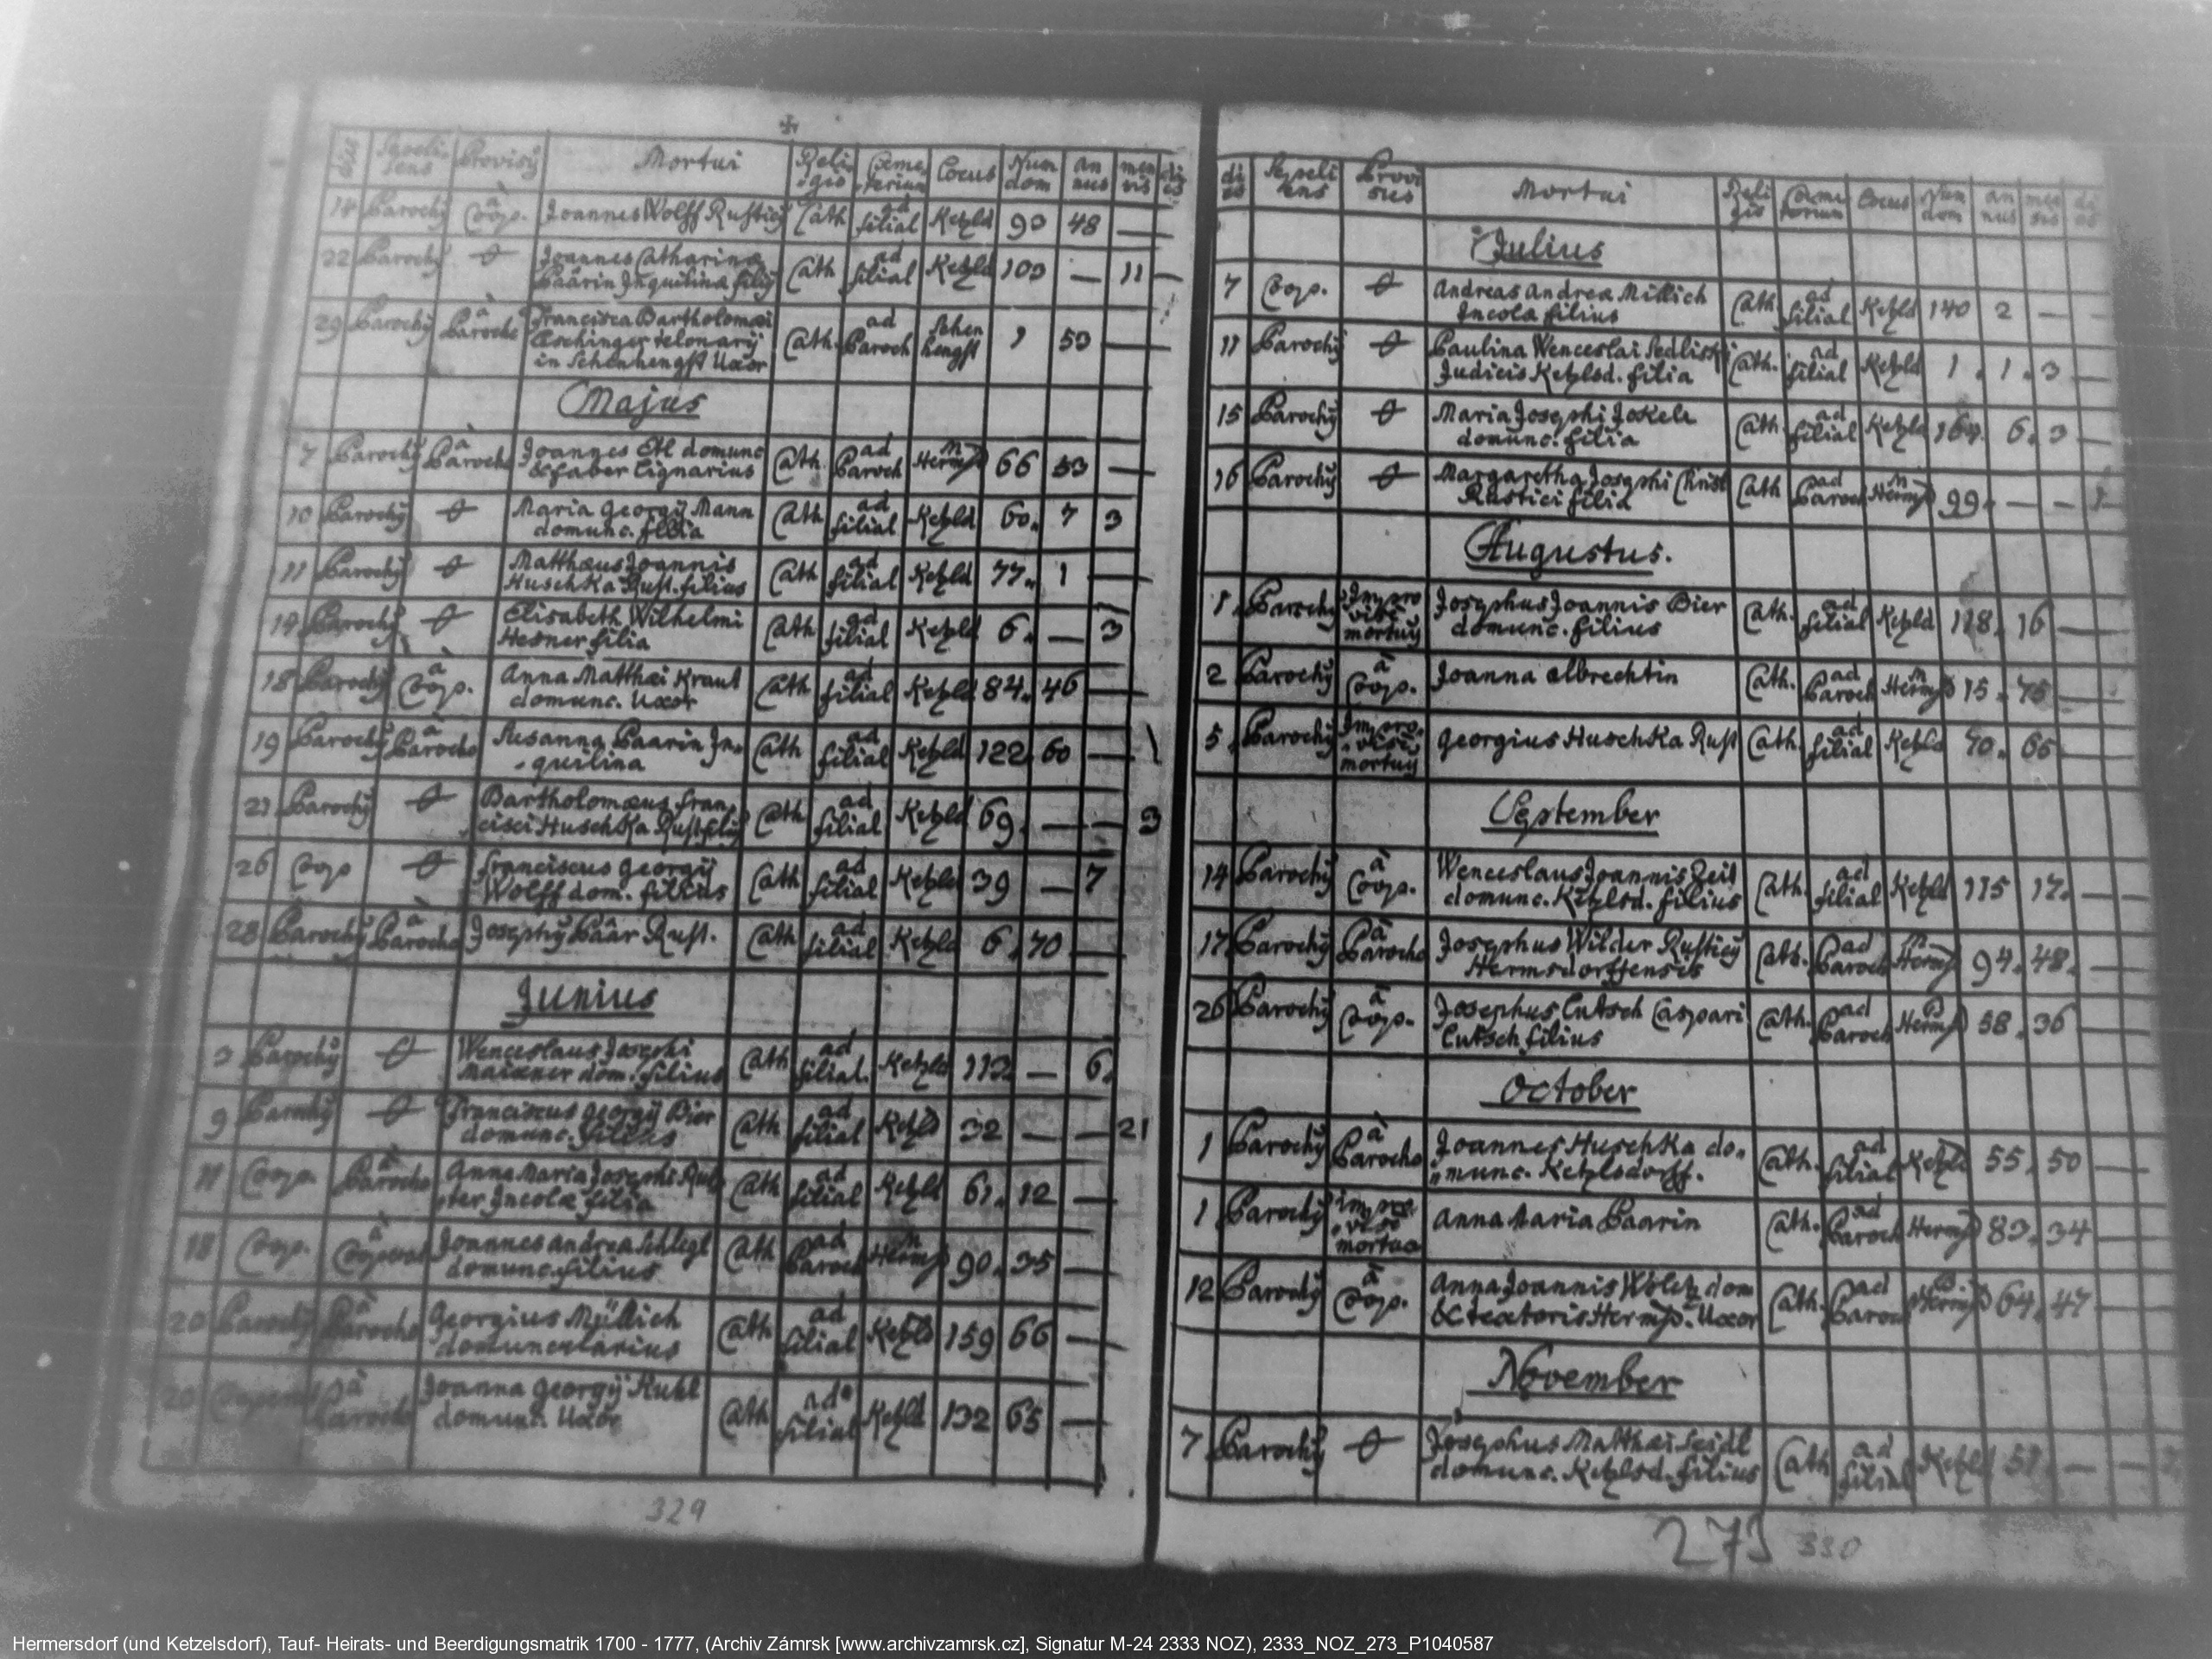 Sepeli- Provisý Mortui Reli- Cœme- Locus Num an men di
sens gio terium dom nus sis es
14 Parochý à Coop. Joannes Wolff Rusticý Cath ad filial Ketzld 90 48 —
22 Parochý θ Joannes Catharina
Päärin Inquilinæ filiý Cath ad filial Ketzld 103 — 11 —
29 Parochý à Parocho Francisca Bartholomæi
Telonarý
in Schönhengst Uxor Cath. ad Paroch Schen hengst 1 53 —
Majus
7 Parochý à Parocho Joannes Etl domunc
& faber lignarius Cath. ad Paroch Hermsd 66 53 —
10 Parochý θ Maria Georgý Mann
domunc. filia Cath ad filial Ketzld 60. 7 3
11 Parochý θ Matthæus Joannis
Huschka Rust. filius Cath ad filial Ketzld 77. 1 —
14 Parochý θ Elisabeth Wilhelmi
Hesner filia Cath ad filial Ketzld 6. — 3
18 Parochý à Coop. Anna Matthæi Kraut
domunc. Uxor Cath ad filial Ketzld 84. 46 —
19 Parochý à Parocho Susanna Paarin In-
quilina Cath ad filial Ketzld 122 60 —
21 Parochý θ Bartholomæus Fran-
cisci Huschka Rust filiý Cath ad filial Ketzld 69. — — 3
26 Coop θ Franciscus Georgý
Wolff dom. filius Cath ad filial Ketzld 39 — 7
28 Parochý à Parocho Josephý Päär Rust. Cath ad filial Ketzld 6. 70 —
Junius
3 Parochý θ Wenceslaus Josephi
Maixner dom. filius Cath ad filial. Ketzld 113. — 6.
9 Parochý θ Franciscus Georgý Bier
domunc. filius Cath ad filial Ketzld 32 — — 21
11 Coop. à Parocho Anna Maria Josephi
Incolæ filia Cath ad filial Ketzld 61. 12 —
18 Coop. à Cooperat Joannes Andrea Schlegl
domunc. filius Cath ad Paroch Hermsd 90. 35 —
20 Parochý à Parocho Georgius Müllich
domuncularius Cath ad filial Ketzld 159 66 —
20 à Parocho Joanna Georgý
domunc. Uxor Cath ad filial Ketzld 132 65 —
329
di Sepeli Provi Mortui Reli Cœme Locus Num an men di
es ens sus gio terium dom nus sis es
Julius
7 Coop. θ Andreas Andreæ Millich
Incolæ filius Cath. ad filial Ketzld 140 2 —
11 Parochý θ Paulina Wenceslai
Judicis Ketzlsd. filia Cath. ad filial Ketzld 1. 1. 3 —
15 Parochý θ Maria Josephi Jokele
domunc. filia Cath. ad filial Ketzld 164. 6. 3 —
16 Parochý θ Margaretha Josephi Christ
Rustici filia Cath ad Paroch Hermsd 99. — — 1
Augustus.
1. Parochý Impro
vise
mortuý Josephus Joannis Bier
domunc. filius Cath. ad filial Ketzld 118. 16 —
2 Parochý à Coop. Joanna Albrechtin Cath. ad Paroch Hermsd 15. 75 —
5. Parochý Impro-
vise
mortuý Georgius Huschka Rust Cath. ad filial Ketzld 70. 66 —
September
14 Parochý à Coop. Wenceslaus Joannis Zeit
domunc. Ketzlsd. filius Cath. ad filial Ketzld 115 17. —
17. Parochý à Parocho Josephus Wilder Rusticý
Hermsdorffensis Cath. ad Paroch Hermsd 94. 48. —
26 Parochý à Coop. Josephus Lutsch Caspari
Lutsch filius Cath. ad Paroch Hermsd 58. 36 —
October
1 Parochý à Parocho Joannes Huschka do-
munc. Ketzlsdorff. Cath. ad filial Ketzld 55. 50 —
1 Parochý Impro-
vise
mortua Anna Maria Paarin Cath. ad Paroch Hermsd 83. 34 —
12 Parochý à Coop. Anna Joannis dom
& textoris Hermsd. Uxor Cath. ad Paroch Hermsd 64. 47 —
November
7 Parochý θ Josephus Matthæi Seidl
domunc. Ketzlsd. filius Cath ad filial Ketzld — —
273 330
Hermersdorf (und Ketzelsdorf), Tauf- Heirats- und Beerdigungsmatrik 1700 - 1777, (Archiv Zámrsk [www.archivzamrsk.cz], Signatur M-24 2333 NOZ), 2333_NOZ_273_P1040587